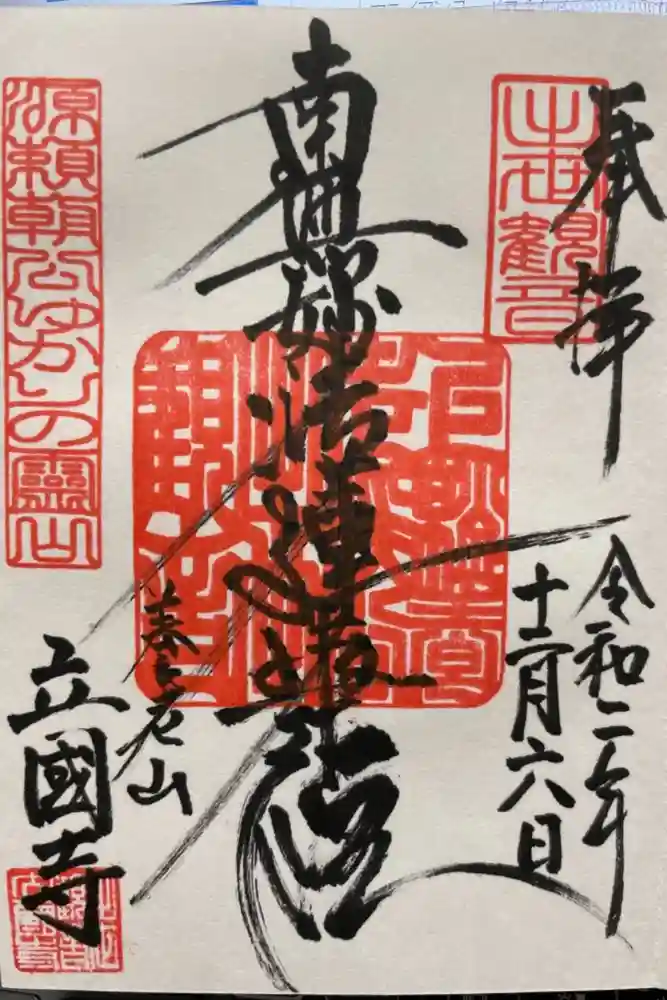 奉拝
出世觀音
令和二年
十二月六日
南無妙法蓮華経
養老山
立國寺
源頼朝公ゆかりの靈山